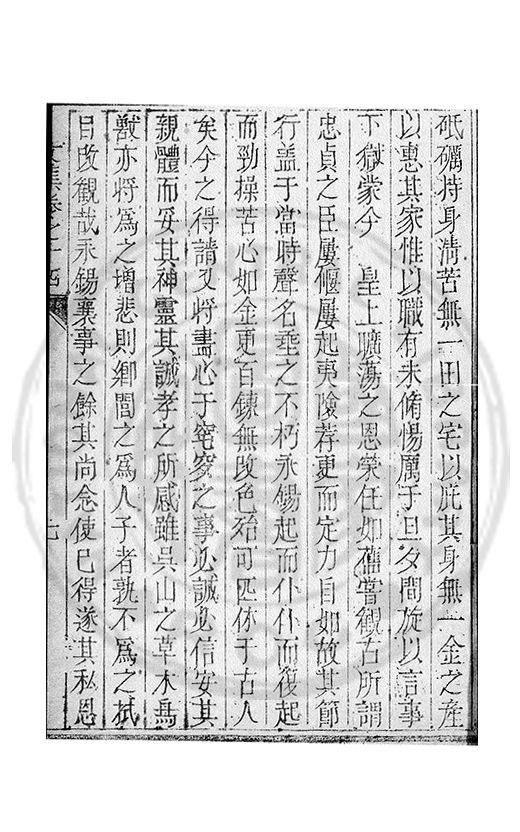 砥礪持身清苦無一田之宅以庇其身無一金之產
以惠其家惟以職有未脩惕厲于旦夕間旋以言事
下獄蒙今　皇上曠蕩之恩榮任如舊嘗觀古所謂
忠貞之臣屢偃屢起夷險荐更而定力自如故其節
行蓋于當時聲名垂之不朽永錫起而仆仆而復起
而勁操苦心如金更百鍊無改色殆可匹休于古人
矣今之得請又將盡心于窀穸之事必誠必信安其
親體而妥其神靈其誠孝之所感雖吳山之草木鳥
獸亦將為之增悲則鄉閭之為人子者孰不為之拭
目改觀哉永錫襄事之餘其尚念使已得遂其私恩
文集卷之十四
七